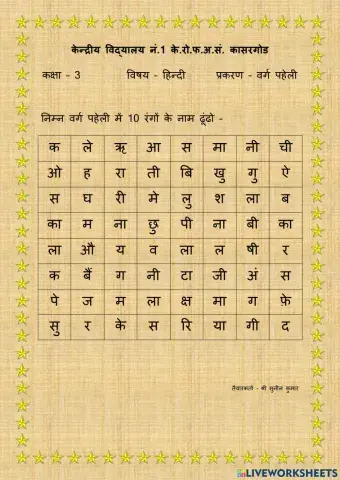 केन्द्रीय विद्यालय नं.1 के.रो.फ.अ.सं. कासरगोड
कक्षा - 3 विषय - हिन्दी प्रकरण - वर्ग पहेली
निम्न वर्ग पहेली में 10 रंगों के नाम ढूंढो -
क ले ऋ आ स मा नी ची
ओ ह रा ती बि खु गु ऐ
स घ री मे लु श ला ब
का म ना छु पी ना बी का
ला औ य व ला ल षी र
क बैं ग नी टा जी अं स
पे ज म ला क्ष मा ग फ़े
सु र के स रि या गी द
तैयारकर्ता - श्री सुनील कुमार
LIVEWORKSHEETS